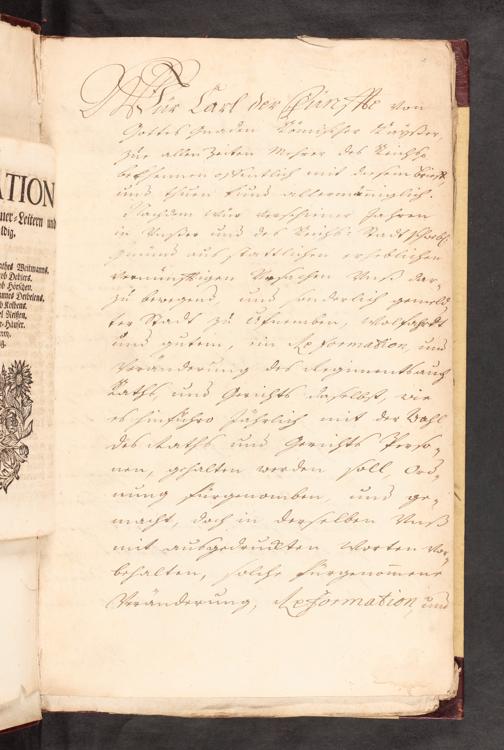 ATION
uer-Leitern und
ldig.
Wir Carl der Fünffte von
Gottes Gnaden Römischer Kayser,
zue allen Zeiten Mehrer des Reichs
bekhennen offentlich mit disem brieff,
und thuen kund allermänniglich.
Nachdem wür verschiner Jahren
in Unser und des Reichs Statt schwebisch
Gmünd aus stattlichen erheblichen
vernünfftigen Ursachen Unß dar,
zu bewegend, und sonderlich gemel,
ter Statt zu Aufnemben, wolfahrt
und gutem, ein Reformation, und
Veränderung des Regiments auch
Raths und Gerichts daselbst, wie
es hinführo Jährlich mit der Wahl
des Raths und Gerichts Perso,
nen, gehalten werden soll, Ord,
nung fürgenomben, und ge,
macht, doch in derselben Unß
mit ausgedruckten Worten vor,
behalten, solche fürgenomene
Veränderung, Reformation, und